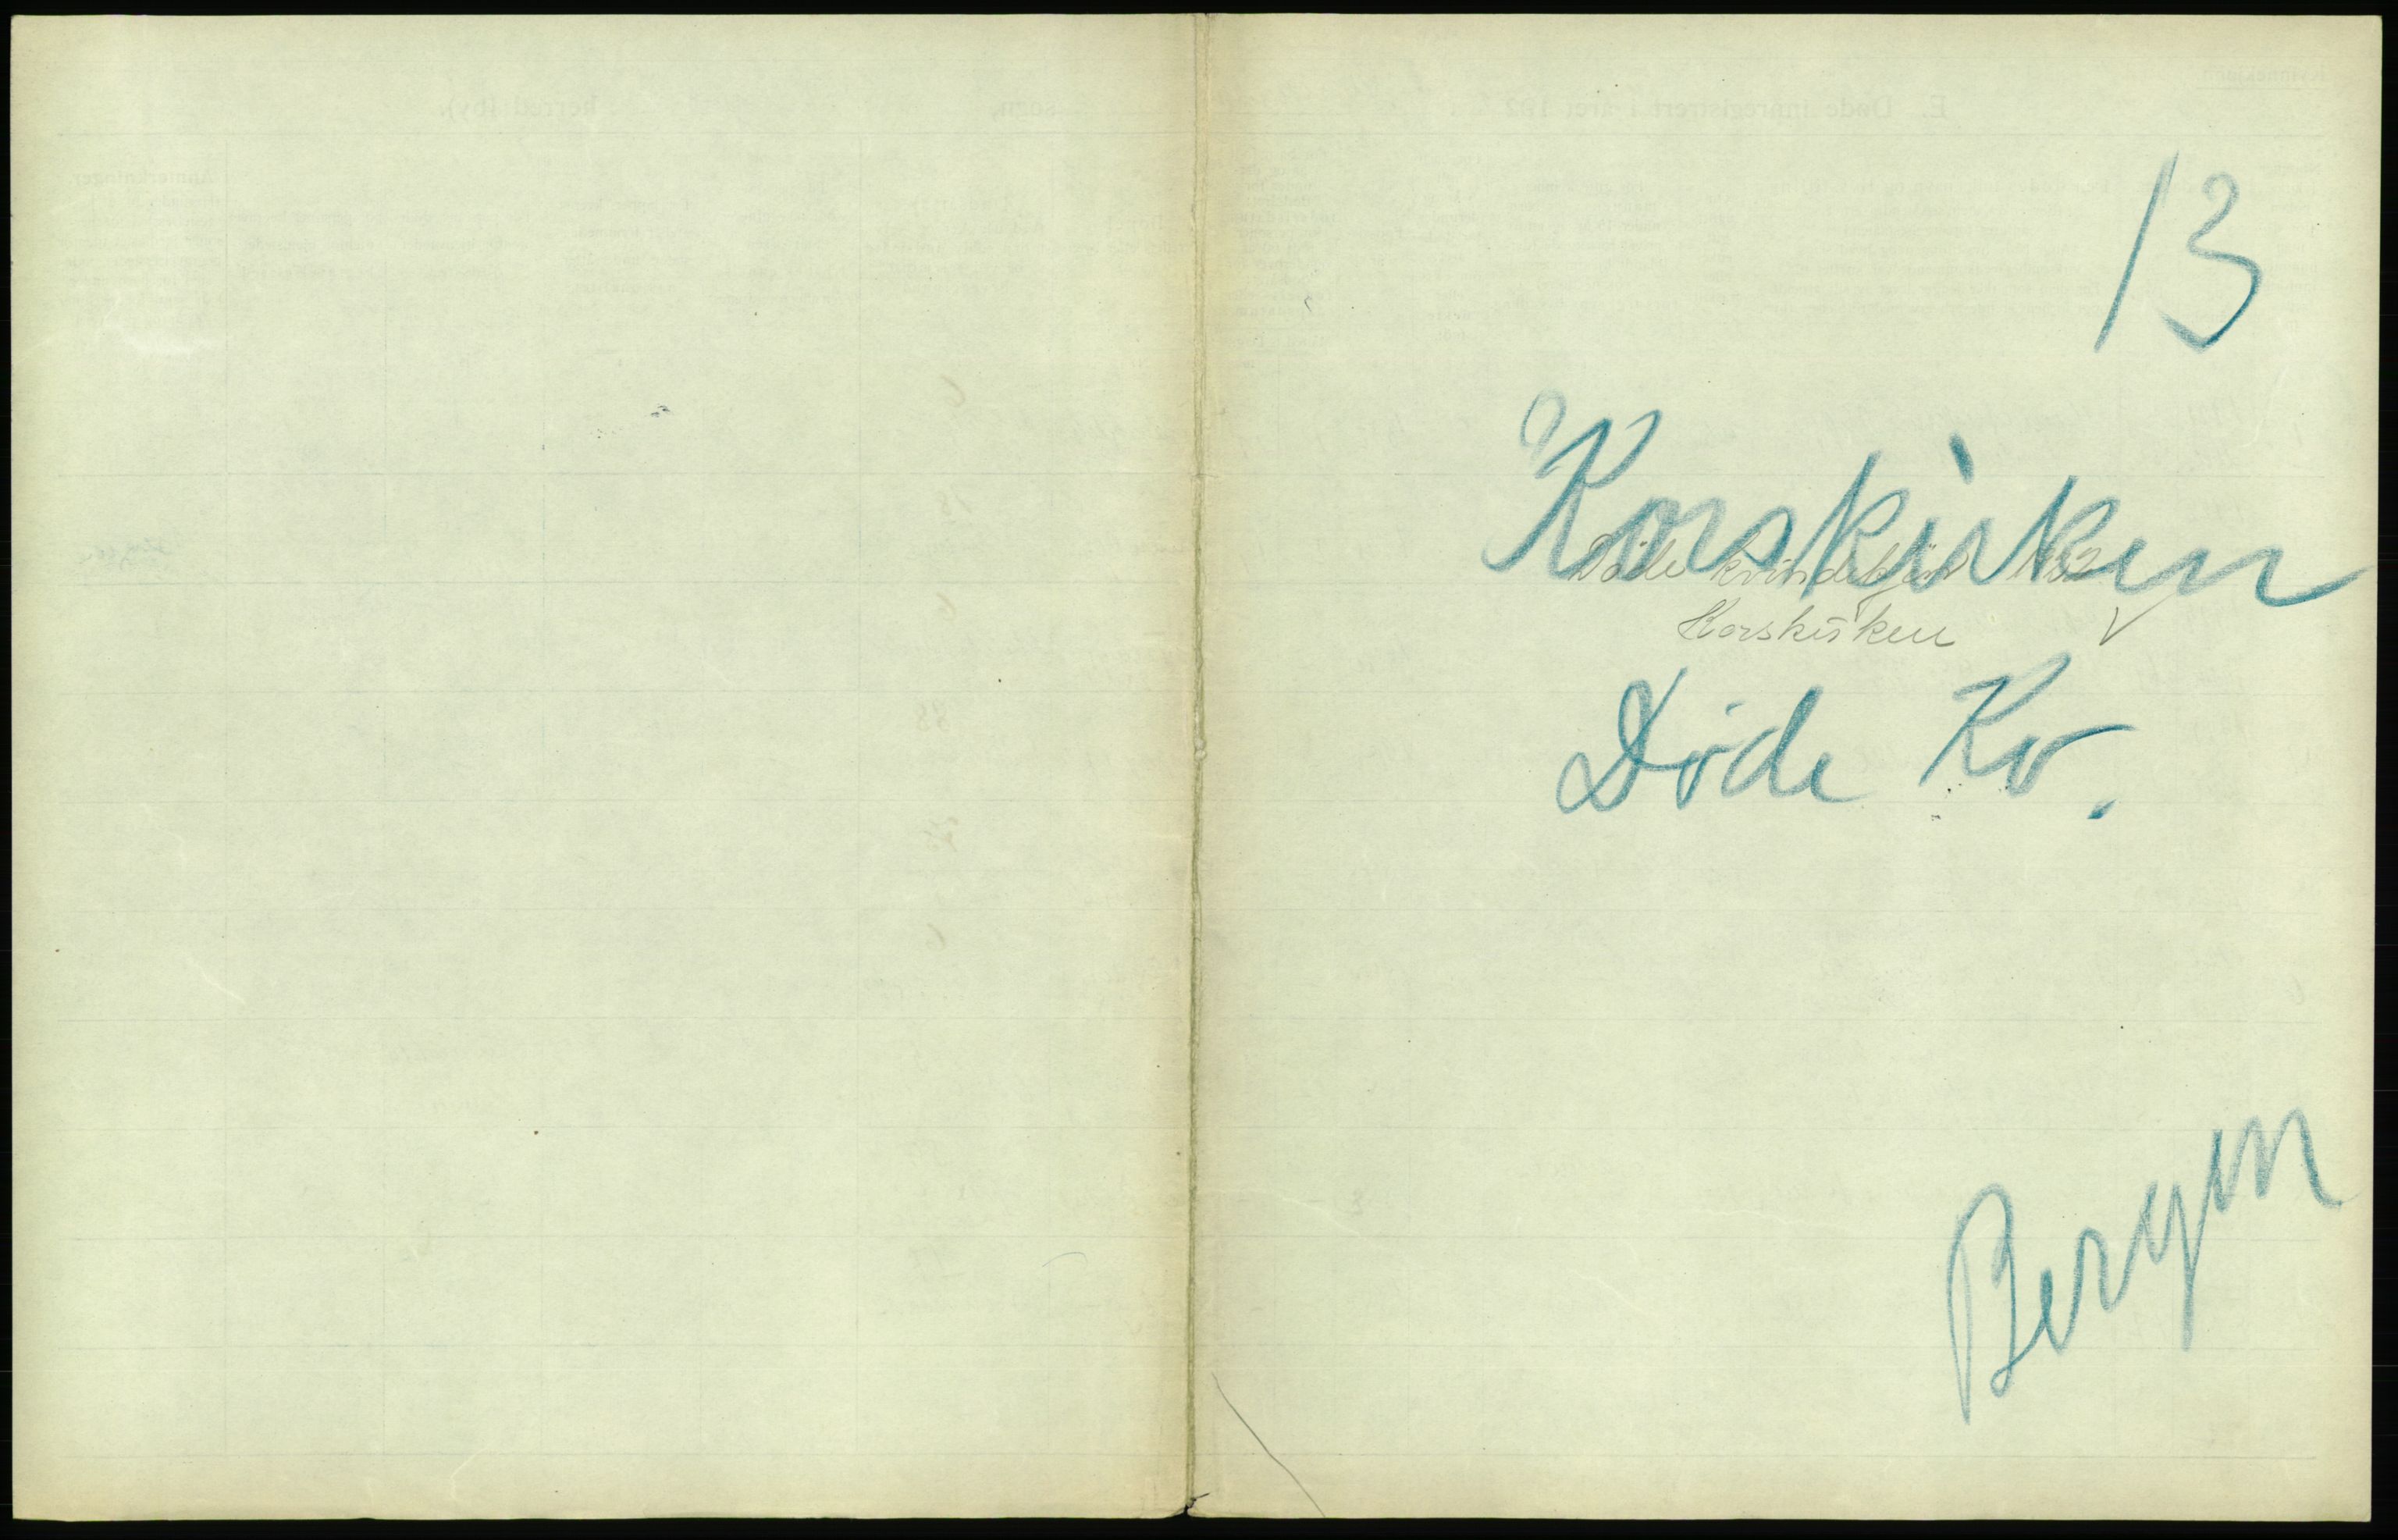 13
Korskirken
Døde kvindekjøn
Korskirken
Døde Kv.
Bergen